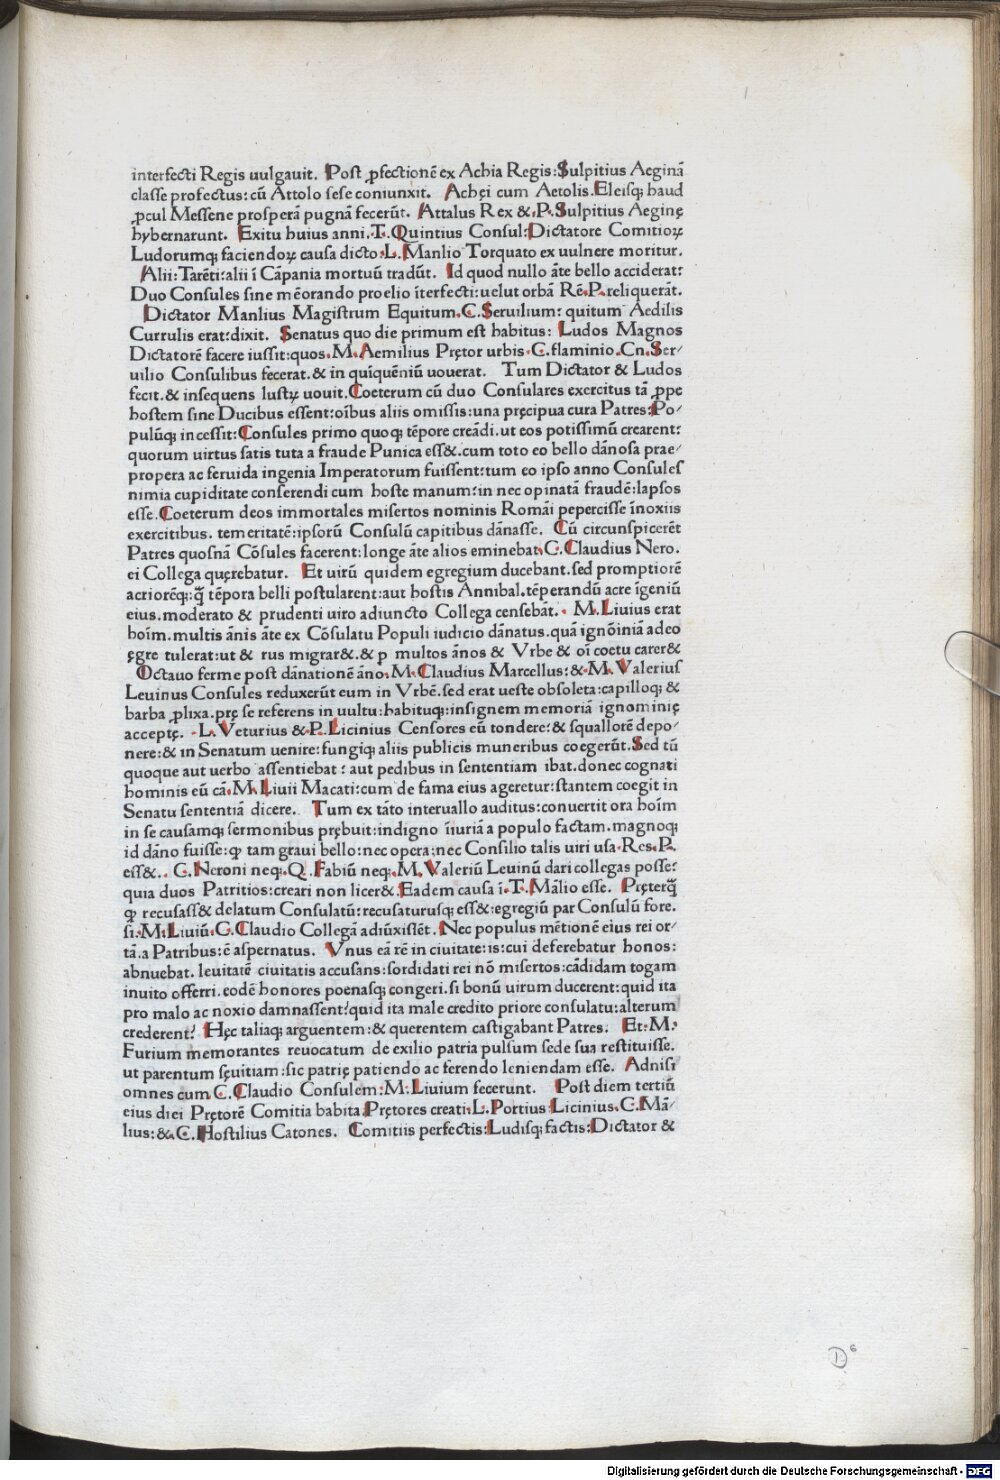 interfecti Regis uulgauit. Post ꝓfectionē ex Achia Regis: Sulpitius Aeginā
classe profectus: cū Attolo sese coniunxit. Achęi cum Aetolis. Eleisq; haud
ꝓcul Messene prosperā pugnā fecerūt. Attalus Rex &. P. Sulpitius Aeginę
hybernarunt. Exitu huius anni. T. Quintius Consul: Dictatore Comitioꝝ
Ludorumq; faciendoꝝ causa dicto. L. Manlio Torquato ex uulnere moritur.
Alii: Tarēti: alii ī Cāpania mortuū tradūt. Id quod nullo āte bello acciderat:
Duo Consules sine mēorando proelio īterfecti: uelut orbā Rē. P. reliquerāt.
Dictator Manlius Magistrum Equitum. C. Seruilium: quitum Aedilis
Currulis erat: dixit. Senatus quo die primum est habitus: Ludos Magnos
Dictatorē facere iussit: quos. M. Aemilius Prętor urbis. C. flaminio. Cn. Ser/
uilio Consulibus fecerat. & in quīquēniū uouerat. Tum Dictator & Ludos
fecit. & insequens lustꝝ uouit. Coeterum cū duo Consulares exercitus tā ꝓpe
hostem sine Ducibus essent: oībus aliis omissis: una pręcipua cura Patres: Po/
pulūq; incessit: Consules primo quoq; tēpore creādi. ut eos potissimū crearent:
quorum uirtus satis tuta a fraude Punica ess&. cum toto eo bello dānosa prae/
propera ac feruida ingenia Imperatorum fuissent: tum eo ipso anno Consules
nimia cupiditate conserendi cum hoste manum: in nec opinatā fraudē: lapsos
esse. Coeterum deos immortales misertos nominis Romāi pepercisse īnoxiis
exercitibus. temeritatē: ipsorū Consulū capitibus dānasse. Cū circunspicerēt
Patres quosnā Cōsules facerent: longe āte alios eminebat. C. Claudius Nero.
ei Collega quęrebatur. Et uirū quidem egregium ducebant. sed promptiorē
acriorēq;: q̄ tēpora belli postularent: aut hostis Annibal. tēperandū acre īgeniū
eius. moderato & prudenti uiro adiuncto Collega censebāt. M. Liuius erat
hoīm. multis ānis āte ex Cōsulatu Populi iudicio dānatus. quā ignōiniā adeo
ęgre tulerat: ut & rus migrar&. & p multos ānos & Vrbe & oī coetu carer&
Octauo ferme post dānationē āno. M. Claudius Marcellus: &. M. Valerius
Leuinus Consules reduxerūt eum in Vrbē. sed erat ueste obsoleta: capilloq; &
barba ꝓlixa. prę se referens in uultu: habituq;: insignem memoriā ignominię
acceptę. L. Veturius &. P. Licinius Censores eū tondere: & squallorē depo/
nere: & in Senatum uenire: fungiq; aliis publicis muneribus coegerūt. Sed tū
quoque aut uerbo assentiebat: aut pedibus in sententiam ibat. donec cognati
hominis eū cā. M. Liuii Macati: cum de fama eius ageretur: stantem coegit in
Senatu sententiā dicere. Tum ex tāto interuallo auditus: conuertit ora hoīm
in se causamq; sermonibus prębuit: indigno īiuriā a populo factam. magnoq;
id dāno fuisse: ꝙ tam graui bello: nec opera: nec Consilio talis uiri usa. Res. P.
ess&. C. Neroni neq;. Q. Fabiū neq;. M. Valeriū Leuinū dari collegas posse:
quia duos Patritios: creari non licer&. Eadem causa ī. T. Mālio esse. Pręterq̄
ꝙ recusass& delatum Consulatū: recusaturusq; ess&: egregiū par Consulū fore.
si. M. Liuiū. C. Claudio Collegā adiūxisl̄et. Nec populus mētionē eius rei or/
tā. a Patribus: ē aspernatus. Vnus eā rē in ciuitate: is: cui deferebatur honos:
abnuebat. leuitatē ciuitatis accusans: sordidati rei nō misertos: cādidam togam
inuito offerri. eodē honores poenasq; congeri. si bonū uirum ducerent: quid ita
pro malo ac noxio damnassent? quid ita male credito priore consulatu: alterum
crederent? Hęc taliaq; arguentem: & querentem castigabant Patres. Et. M.
Furium memorantes reuocatum de exilio patria pulsum sede sua restituisse.
ut parentum sęuitiam: sic patrię patiendo ac ferendo leniendam esse. Adnisi
omnes cum C. Claudio Consulem: M. Liuium fecerunt. Post diem tertiū
eius diei Prętorē Comitia habita. Prętores creati. L. Portius Licinius. C. Mā/
lius: &. C. Hostilius Catones. Comitiis perfectis: Ludisq; factis: Dictator &
D 6
Digitalisierung gefördert durch die Deutsche Forschungsgemeinschaft - DFG